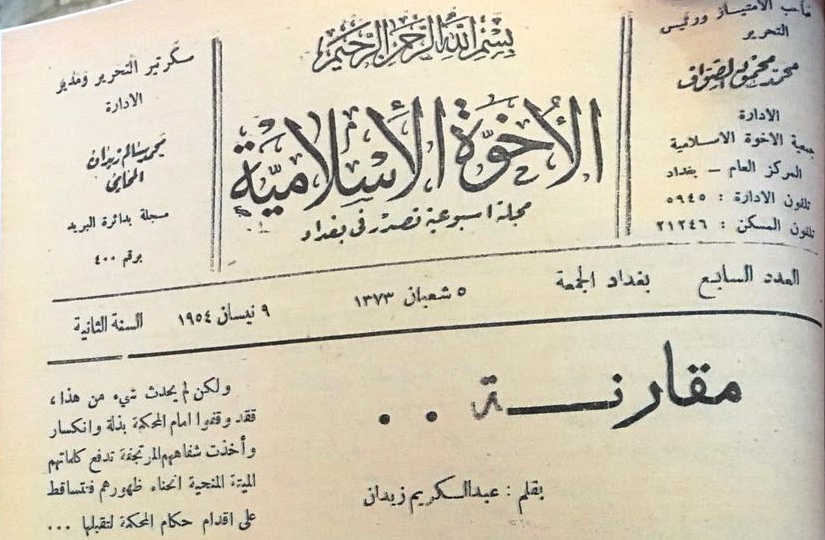 بسم الله الرحمن الرحيم
صاحب الامتياز ورئيس
التحرير
محمد محمود الصواف
الادارة
جمعية الاخوة الاسلامية
المركز العام — بغداد
تلفون الادارة : ٥٩٤٥
تلفون السكن : ٢١٢٤٦
الأخوة الإسلامية
مجلة اسبوعية تصدر في بغداد
سكرتير التحرير ومدير
الادارة
محمد سالم زيدان
المحامي
مسجلة بدائرة البريد
برقم ٤٠٠
العدد السابع بغداد الجمعة ٥ شعبان ١٣٧٣ ٩ نيسان ١٩٥٤ السنة الثانية
مقارنة . .
بقلم : عبدالكريم زيدان
ولكن لم يحدث شيء من هذا،
فقد وقفوا امام المحكمة بذلة وانكسار
وأخذت شفاههم المرتجفة تدفع كلماتهم
الميتة المنحية انحناء ظهورهم فتتساقط
على اقدام حكام المحكمة لتقبلها ...